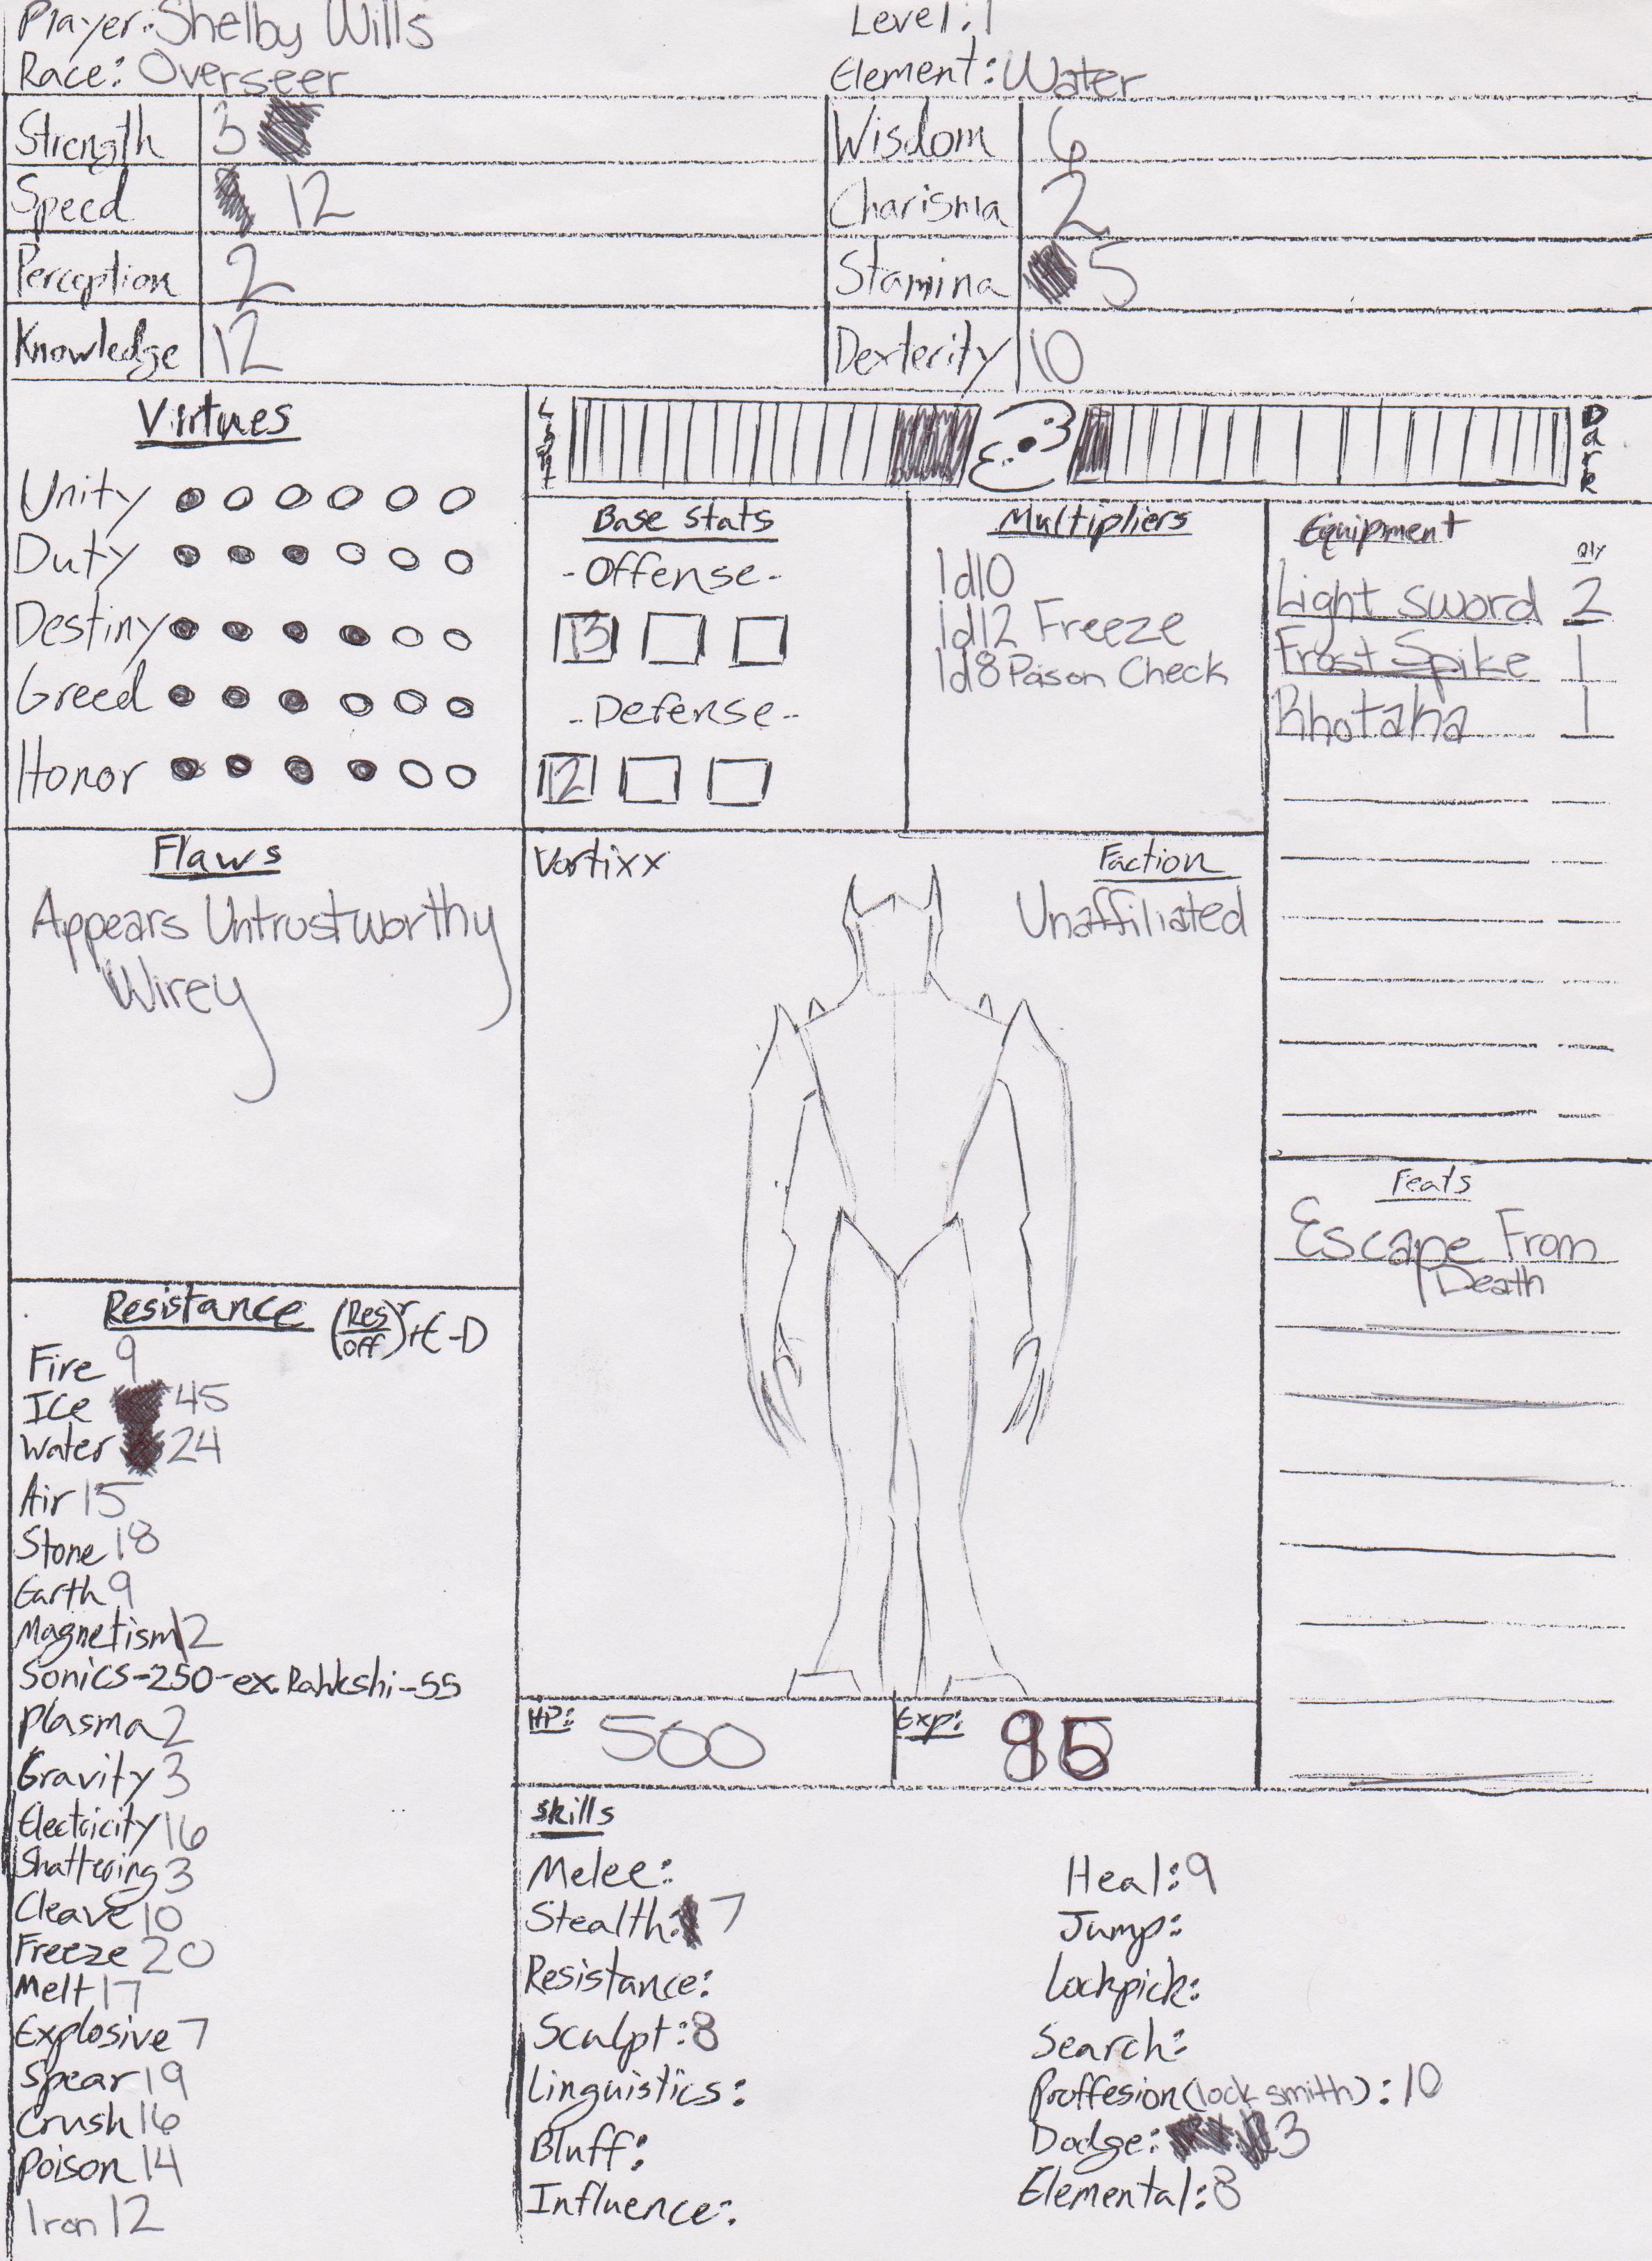 Player: Shelby Wills
Level: 1
Race: Overseer
Element: Water
Strength 3
Wisdom 6
Speed 12
Charisma 2
Perception 2
Stamina 5
Knowledge 12
Dexterity 10
Virtues
Unity
Duty
Destiny
Greed
Honor
Light
Dark
Base Stats
-Offense-
13
-Defense-
12
Multipliers
1d10
1d12 Freeze
1d8 Poison Check
Equipment
Qty
Light Sword 2
Frost Spike 1
Rhotaka 1
Flaws
Appears Untrustworthy
Wirey
Vortixx
Faction
Unaffiliated
Feats
Escape From
Death
Resistance (Res/Off)^r+E-D
Fire 9
Ice 45
Water 24
Air 15
Stone 18
Earth 9
Magnetism 12
Sonics-250-ex. Rahkshi-55
Plasma 2
Gravity 3
Electricity 16
Shattering 3
Cleave 10
Freeze 20
Melt 17
Explosive 7
Spear 19
Crush 16
Poison 14
Iron 12
HP: 500
Exp:
Skills
Melee:
Stealth: 7
Resistance:
Sculpt: 8
Linguistics:
Bluff:
Influence:
Heal: 9
Jump:
Lockpick:
Search:
Proffesion (lock smith): 10
Dodge: 3
Elemental: 8